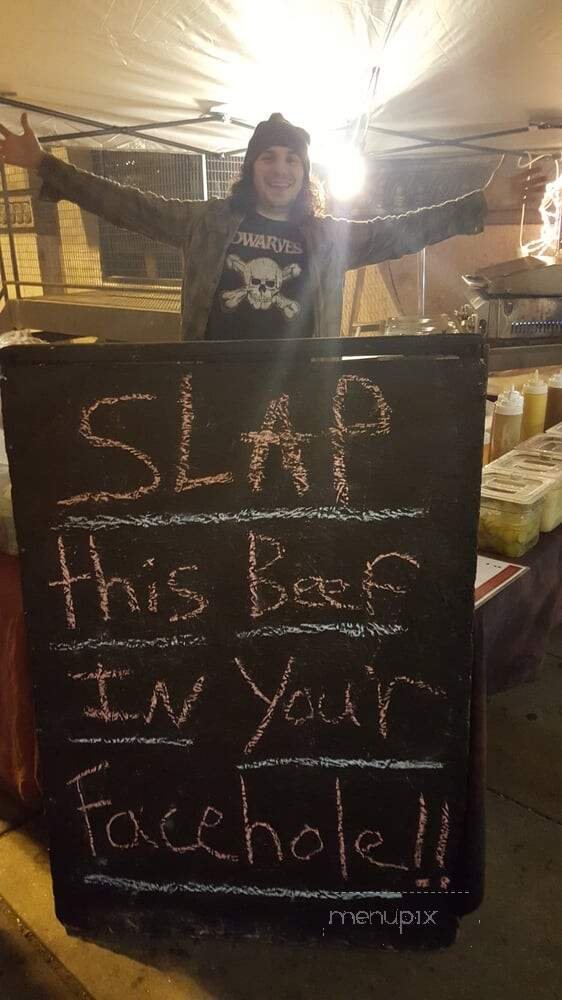 DWARVES
SLAP
this Beef
In Your
Facehole!!
menupix